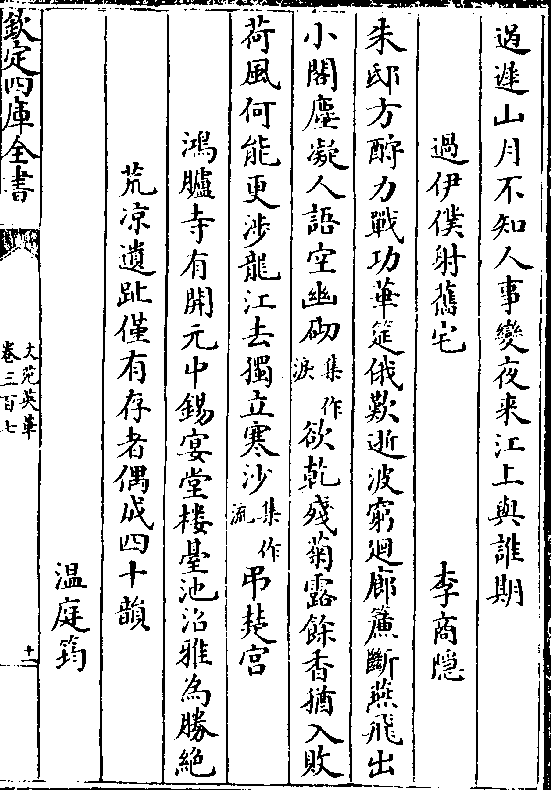 過遅山月不知人事變夜来江上與誰期
過伊僕射舊宅
李商隠
朱邸方酧力戰功華筵俄歎逝波窮迴廊簾斷燕飛出
小閣塵凝人語空幽砌集作淚欲乾殘菊露餘香猶入敗
荷風何能更涉龍江去獨立寒沙集作流弔楚宫
鴻臚寺有開元中錫宴堂樓臺池沼雅為勝絶
荒凉遺趾僅有存者偶成四十韻
温庭筠
欽定四庫全書
文苑英華
卷三百七
十二